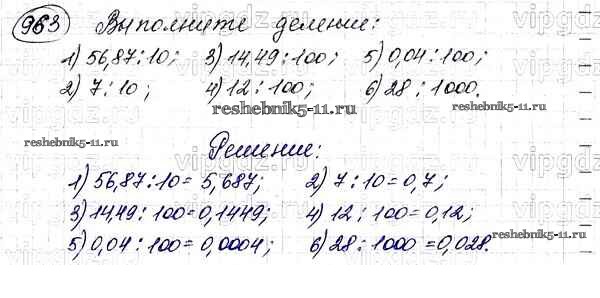 963 Выполните деление:
1) 56,87:10; 3) 14,49:100; 5) 0,04:100;
2) 7:10; 4) 12:100; 6) 28:1000.
reshebnik5-11.ru
reshebnik5-11.ru
reshebnik5-11.ru
Решение:
1) 56,87:10=5,687; 2) 7:10=0,7;
3) 14,49:100=0,1449; 4) 12:100=0,12;
5) 0,04:100=0,0004; 6) 28:1000=0,028.
reshebnik5-11.ru